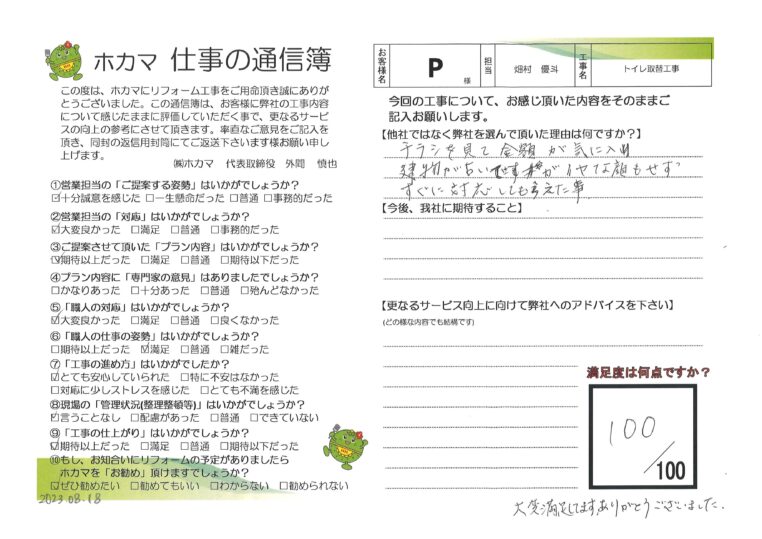 ホカマ 仕事の通信簿
この度は、ホカマにリフォーム工事をご用命頂き誠にありが
とうございました。この通信簿は、お客様に弊社の工事内容
について感じたままに評価していただく事で、更なるサービ
スの向上の参考にさせて頂きます。率直なご意見をご記入を
頂き、同封の返信用封筒にてご返送下さいます様お願い申し
上げます。
㈱ホカマ 代表取締役 外間 慎也
①営業担当の「ご提案する姿勢」はいかがでしょうか?
☑十分誠意を感じた □一生懸命だった □普通 □事務的だった
②営業担当の「対応」はいかがでしょうか?
☑大変良かった □満足 □普通 □事務的だった
③ご提案させて頂いた「プラン内容」はいかがでしょうか?
☑期待以上だった □満足 □普通 □期待以下だった
④プラン内容に「専門家の意見」はありましたでしょうか?
□かなりあった □十分あった □普通 □殆んどなかった
⑤「職人の対応」はいかがでしょうか?
☑大変良かった □満足 □普通 □良くなかった
⑥「職人の仕事の姿勢」はいかがでしょうか?
□期待以上だった ☑満足 □普通 □雑だった
⑦「工事の進め方」はいかがでしたか?
☑とても安心していられた □特に不安はなかった
□対応に少しストレスを感じた □とても不満を感じた
⑧現場の「管理状況(整理整頓等)」はいかがでしょうか?
☑言うことなし □配慮があった □普通 □できていない
⑨「工事の仕上がり」はいかがでしょうか?
☑期待以上だった □満足 □普通 □期待以下だった
⑩もし、お知合いにリフォームの予定がありましたら
ホカマを「お勧め」頂けますでしょうか?
☑ぜひ勧めたい □勧めてもいい □わからない □勧められない
2023.08.18
お客様名 P 様 担当 畑村 優斗 工事名 トイレ取替工事
今回の工事について、お感じ頂いた内容をそのままご
記入お願いします。
【他社ではなく弊社を選んで頂いた理由は何ですか?】
チラシを見て金額が気に入り
建物が古いですがイヤな顔もせず
すぐに対応してもらえた事
【今後、我社に期待すること】
【更なるサービス向上に向けて弊社へのアドバイスを下さい】
(どの様な内容でも結構です)
満足度は何点ですか?
100
/100
大変満足してます。ありがとうございました。